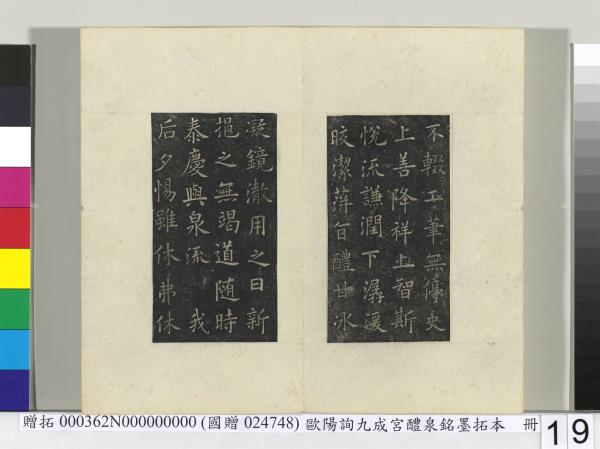 不輟工筆無停史
上善降祥上智斯
悅流謙潤下潺湲
皎潔蓱旨醴甘冰
凝鏡澈用之日新
挹之無竭道随時
泰慶與泉流我
后夕惕雖休弗休
贈拓 000362N000000000 (國贈 024748) 歐陽詢九成宮醴泉銘墨拓本 冊
19